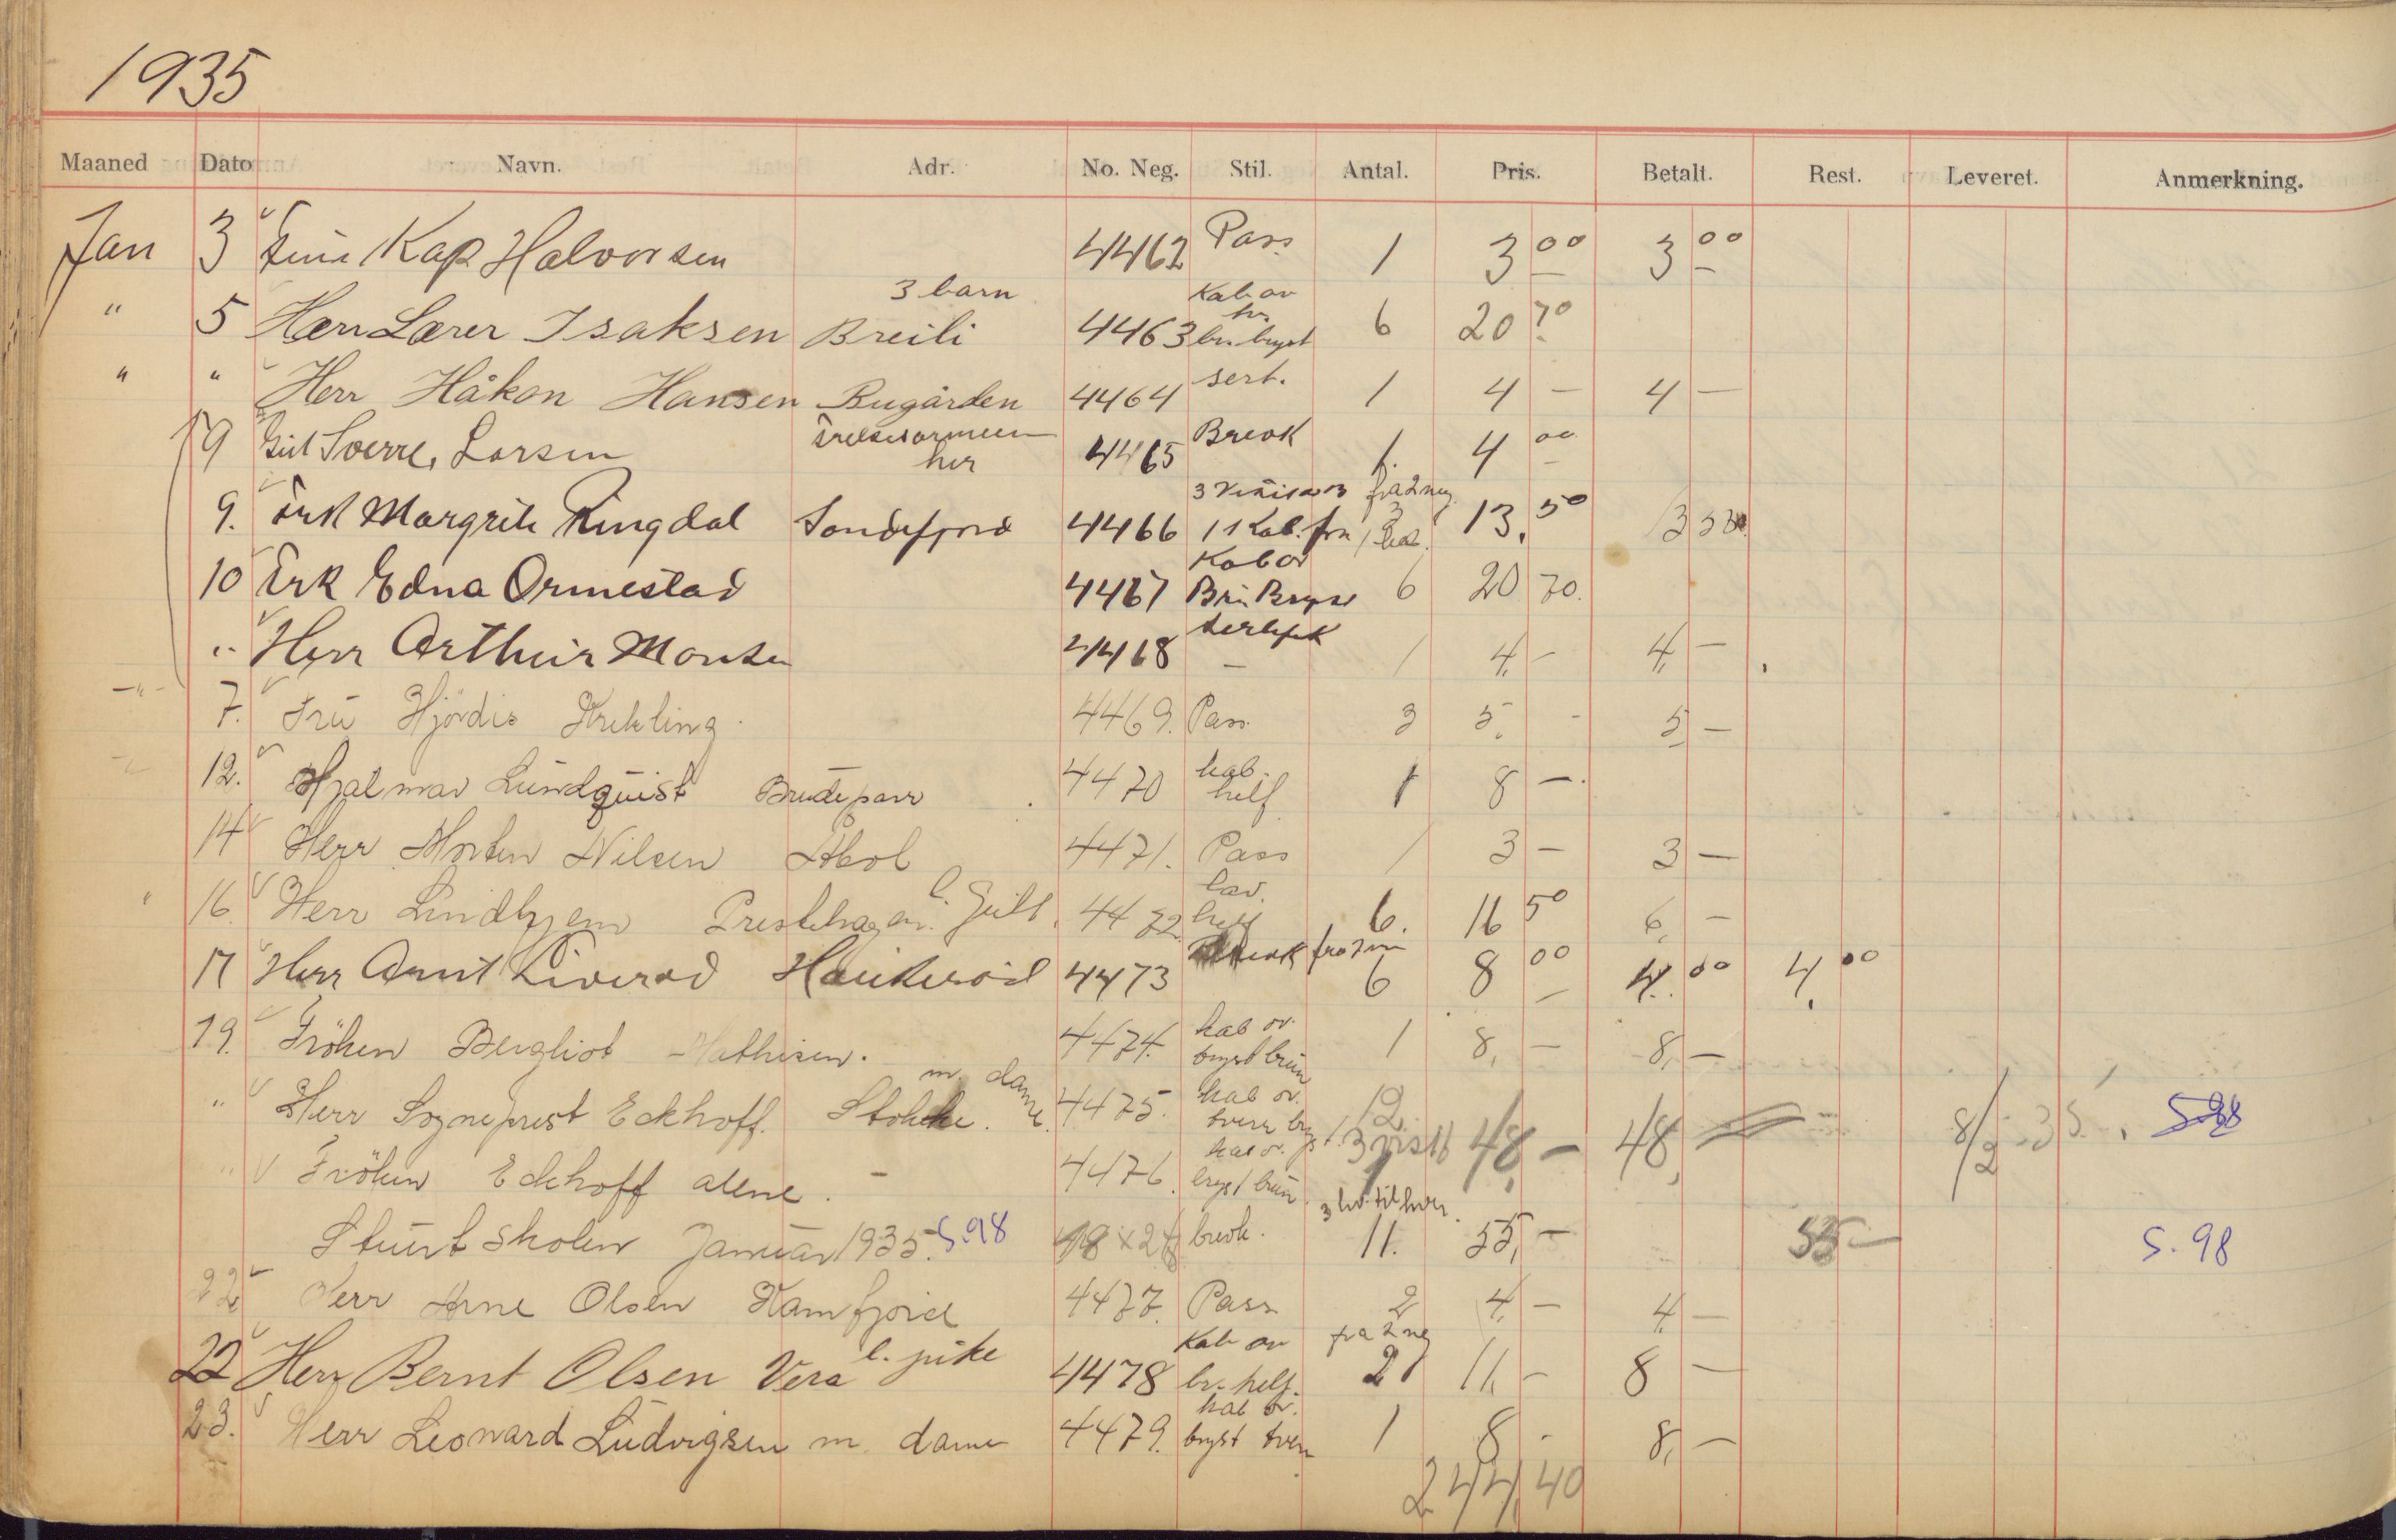 1935
Maaned Dato Navn. Adr. No. Neg. Stil. Antal. Pris. Betalt. Rest. Leveret. Anmerkning.
Jan 3 Kap Halvorsen 4462 Pass 1 3 00 3 00
3 barn Kab ov
" 5 Herr Lærer Isaksen Breili 4463 br. bryst 6 20 70
" " Herr Håkon Hansen Bugården 4464 sert. 1 4 — 4 —
9 Sverre Larsen Frelsesarmeen her 4465 Breok 1. 4 00
3 fra 2 neg.
9. Frk Margrete Ringdal Sandefjord 4466 1 Kab. fra 13. 50 13 50
Kab ov
10 Frk Edna Ormestad 4467 Brü Bryst 6 20 70.
" Herr Arthur Monsen 4468 — 1 4, — 4, —
7. Frü Hjördis Krekling. 4469. Pass 3 5. - 5 —
12. Hjalmar Lündquist Brüdepar 4470 kab. helf 1 8 —.
14 Herr Morten Nilsen 4471. Pass 1 3 — 3 —
16. Herr Lindhjem Prestehagen. l. Gütt. 4472 6. 16 50 6, —
17 Herr Arnt Liverød Haukerød 4473 6 8 00 4. 00 4. 00
19. Fröken Bergliot Mathisen. 4474. kab ov. bryst brün 1 8, — 8, —
" Herr Sogneprest Eckhoff. Stokke. m. dame. 4475. kab ov. tverr bryst. 12
" Fröken Eckhoff alene. — 4476. kab ov. bryst brün. 3 visit 48, — 48, — 8/2 - 35. S. 98
3 hv. til hver.
Stuert skolen Januar 1935. S.98 18 x 24 breok. 11. 55, — 55 — S. 98
22 Herr Arne Olsen Kamfjord 4477. Pass 2 4, — 4, —
22 Herr Bernt Olsen Vera l. pike 4478 Kab ov br. helf. fra 2 neg 2 11, — 8 —
23. Herr Leonard Lüdvigsen m. dame 4479. kab ov. bryst tverr 1 8 - 8, —
244,40